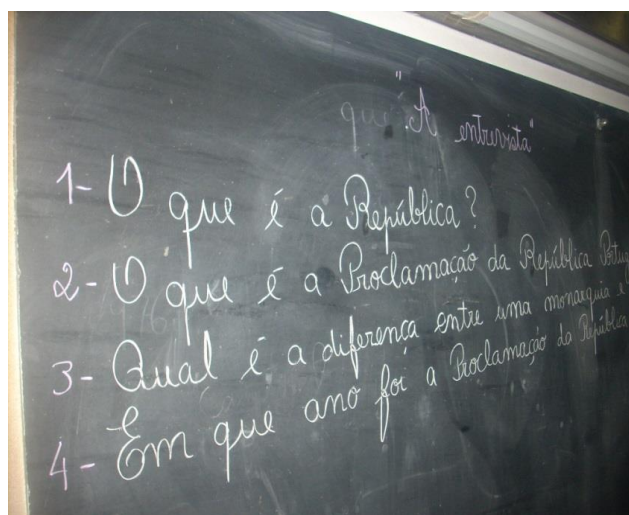 "A entrevista"
1- O que é a República?
2- O que é a Proclamação da República
3- Qual é a diferença entre uma monarquia e
4- Em que ano foi a Proclamação da República